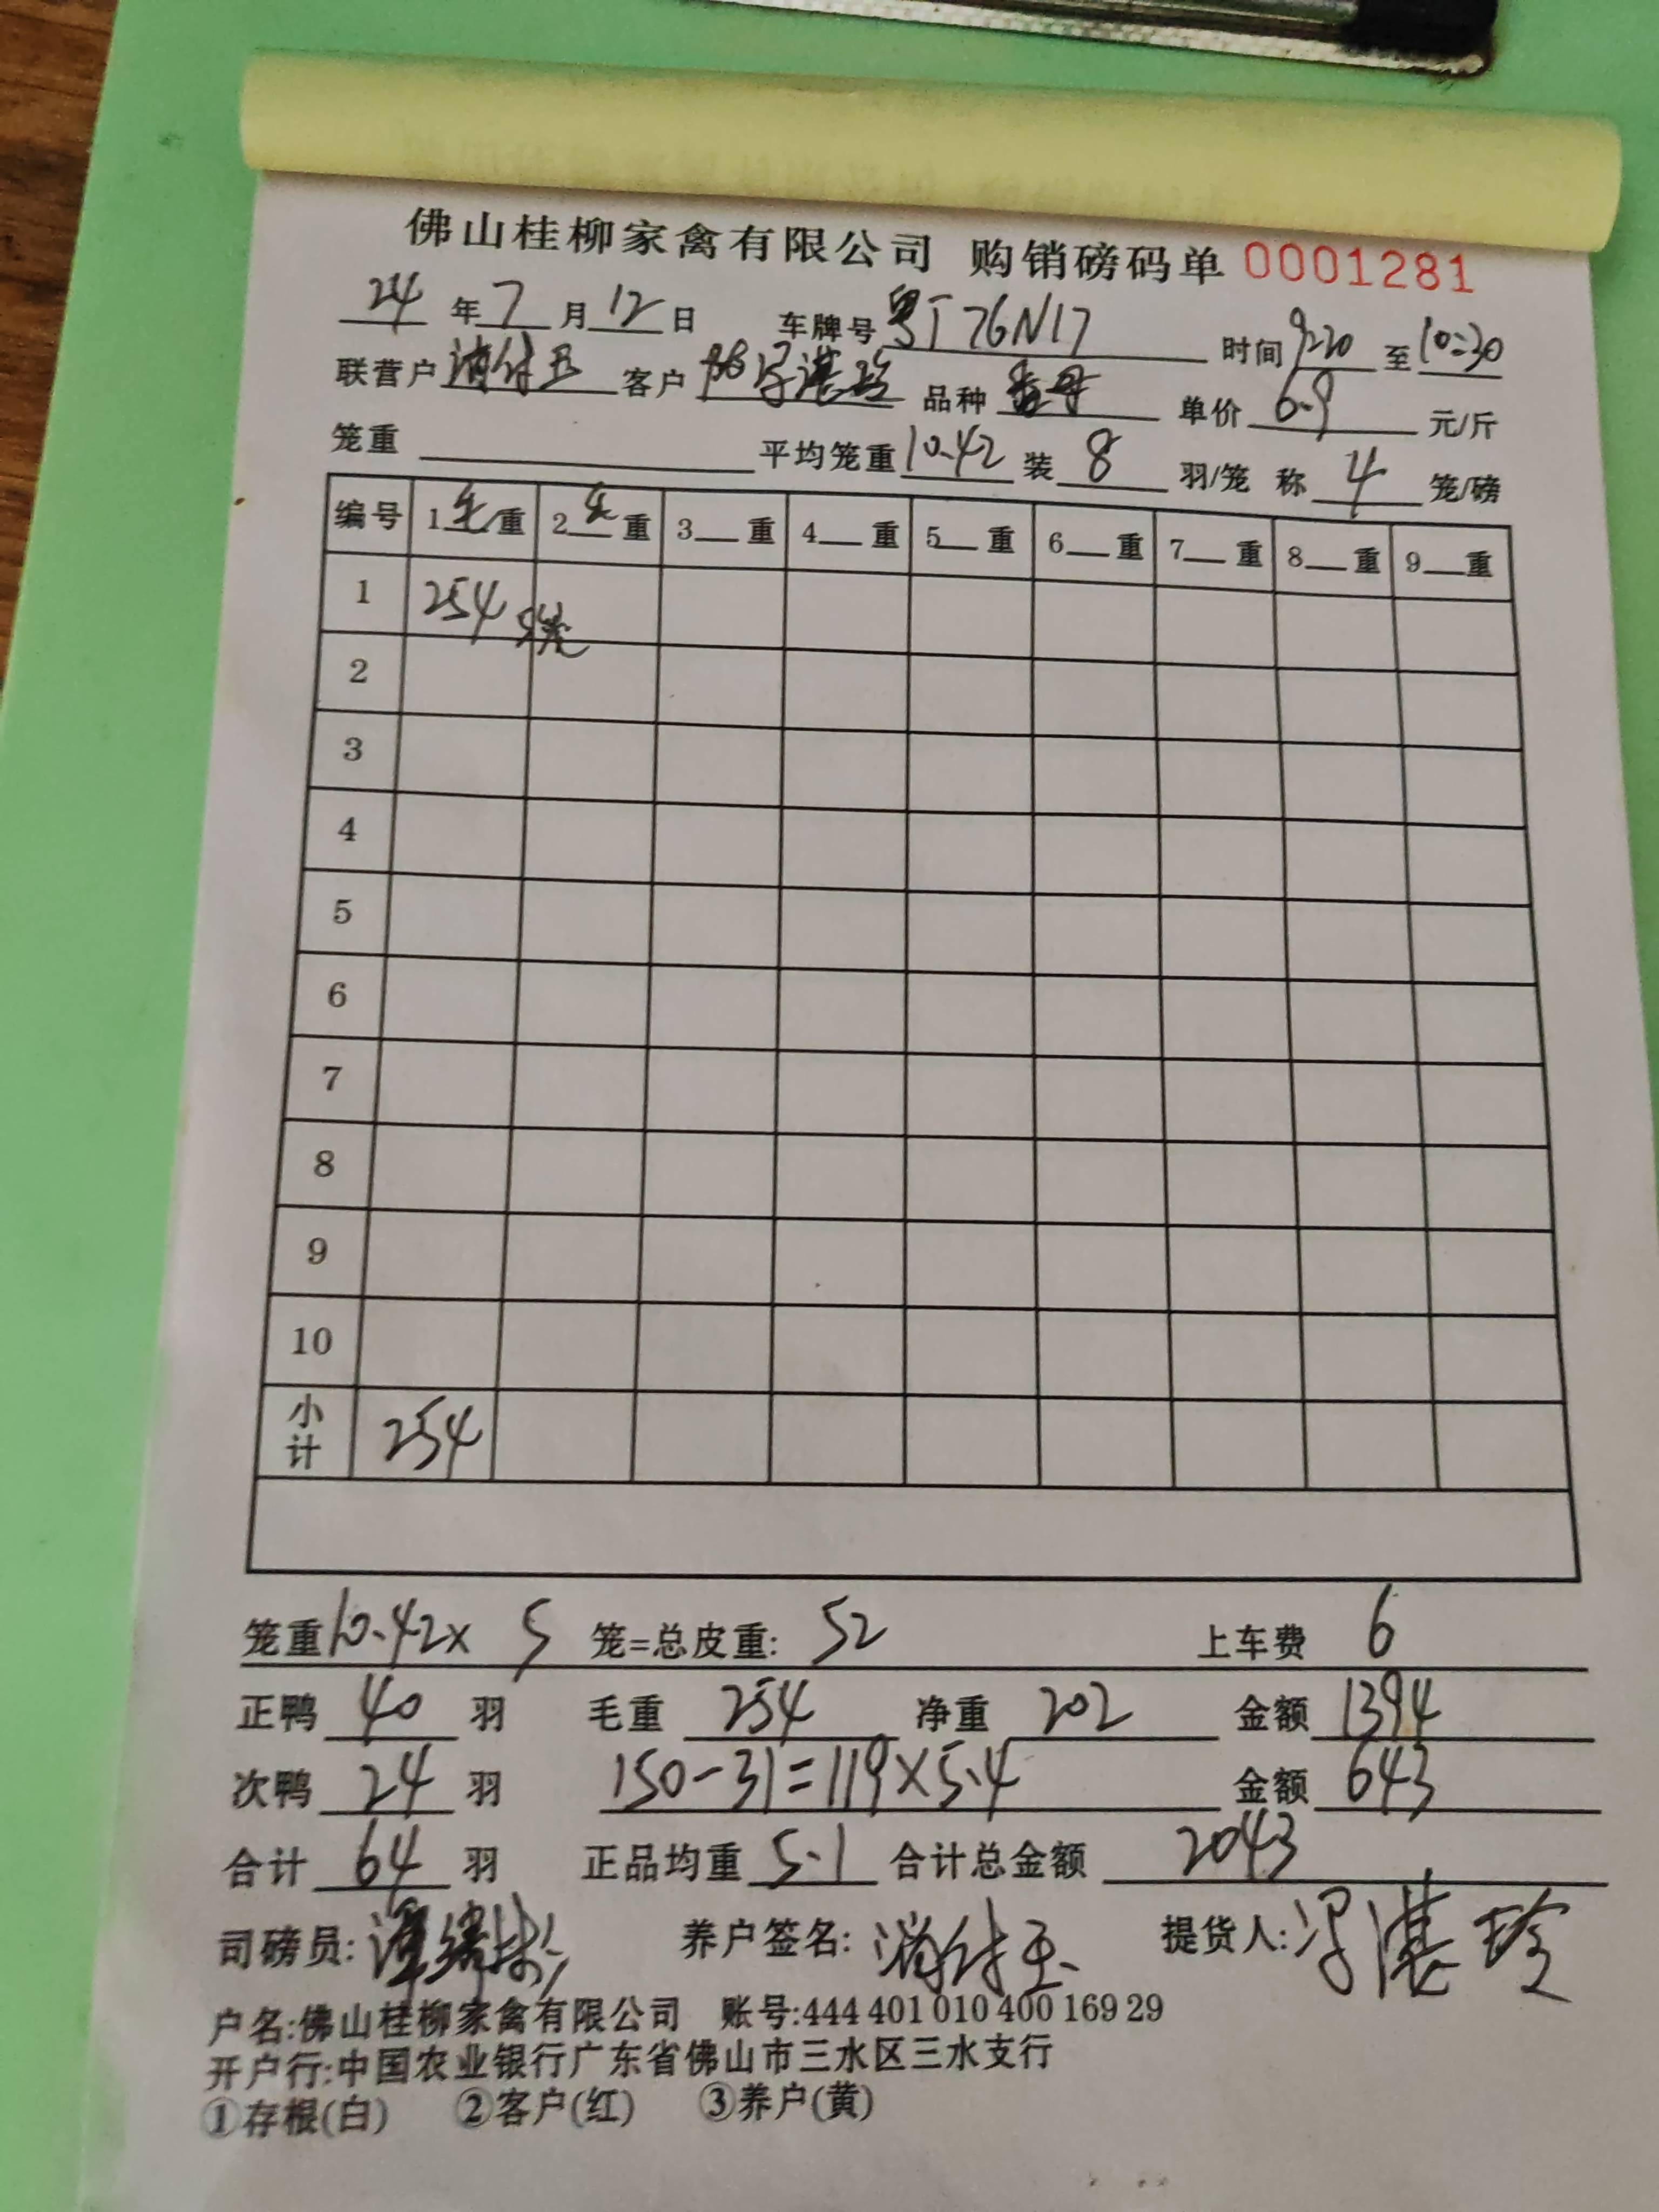 佛山桂柳家禽有限公司 购销磅码单 0001281
24 年 7 月 12 日 车牌号 粤T76N17 时间 9:20 至 10:30
联营户 客户 品种 单价 6.9 元/斤
笼重 平均笼重 10.42 装 8 羽/笼 称 4 笼/磅
编号 1 毛 重 2 毛 重 3 重 4 重 5 重 6 重 7 重 8 重 9 重
1 254 5笼
2
3
4
5
6
7
8
9
10
小计 254
笼重 10.42× 5 笼=总皮重: 52 上车费 6
正鸭 40 羽 毛重 254 净重 202 金额 1394
次鸭 24 羽 150-31=119×5.4 金额 643
合计 64 羽 正品均重 5.1 合计总金额 2043
司磅员: 养户签名: 提货人: 冯湛玲
户名:佛山桂柳家禽有限公司 账号:444 401 010 400 169 29
开户行:中国农业银行广东省佛山市三水区三水支行
①存根(白) ②客户(红) ③养户(黄)